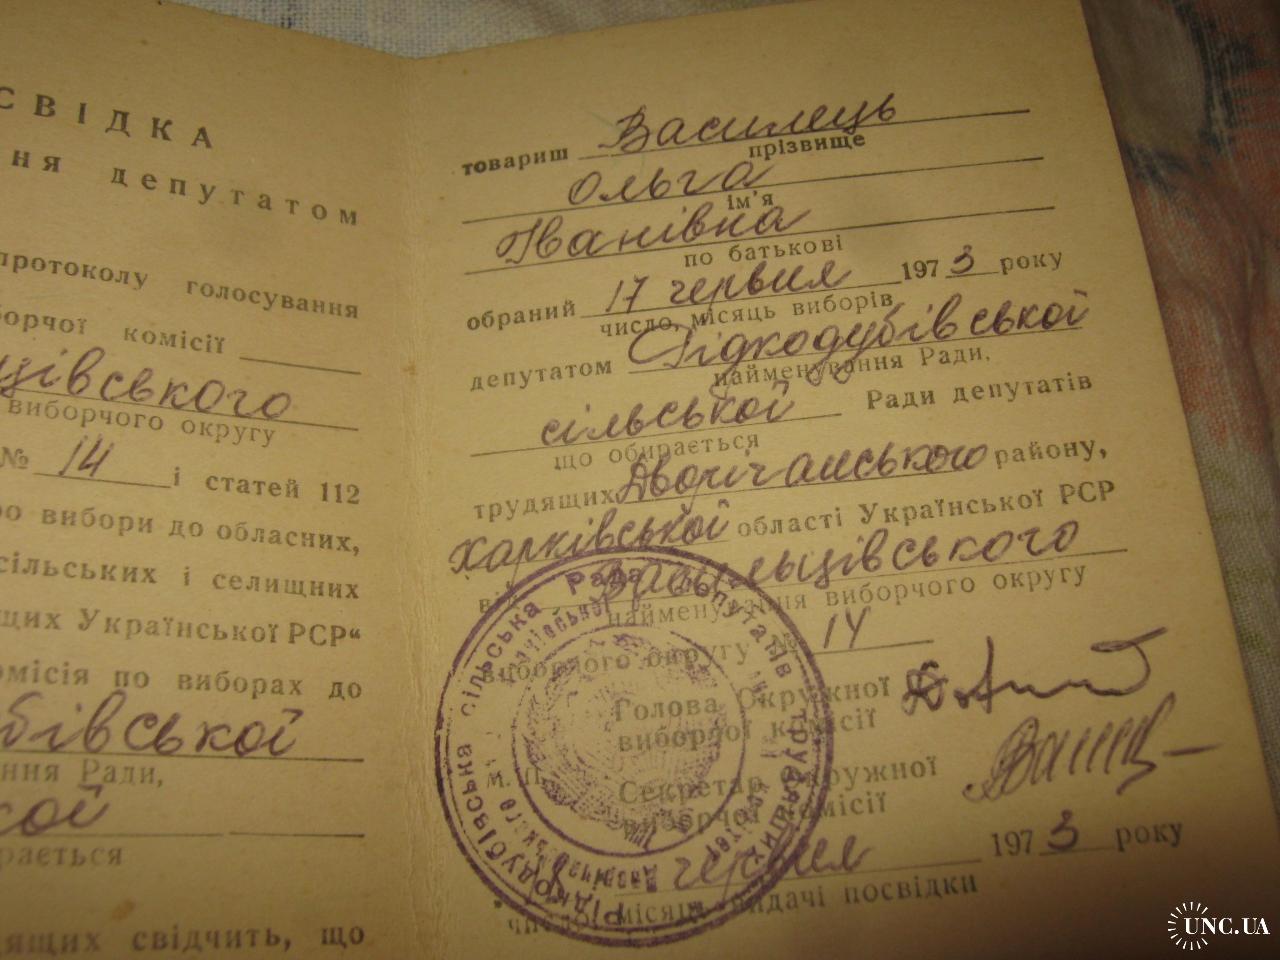 СВІДКА
ня депутатом
протоколу голосування
борчої комісії
цівського
виборчого округу
№ 14 і статей 112
ро вибори до обласних,
сільських і селищних
щих Української РСР“
омісія по виборах до
бівської
ння Ради,
кої
рається
дящих свідчить, що
товариш Василець
прізвище
Ольга
ім'я
Іванівна
по батькові
обраний 17 червня 1973 року
число, місяць виборів
депутатом Рідкодубівської
найменування Ради,
сільської Ради депутатів
що обирається
трудящих Дворічанського району,
Харківської області Української РСР
від Васильцівського
найменування виборчого округу
виборчого округу № 14
Голова Окружної
виборчої комісії
М. П.
Секретар окружної
виборчої комісії
червня 1973 року
число, місяць видачі посвідки
Рідкодубівська сільська Рада депутатів трудящих
UNC.UA